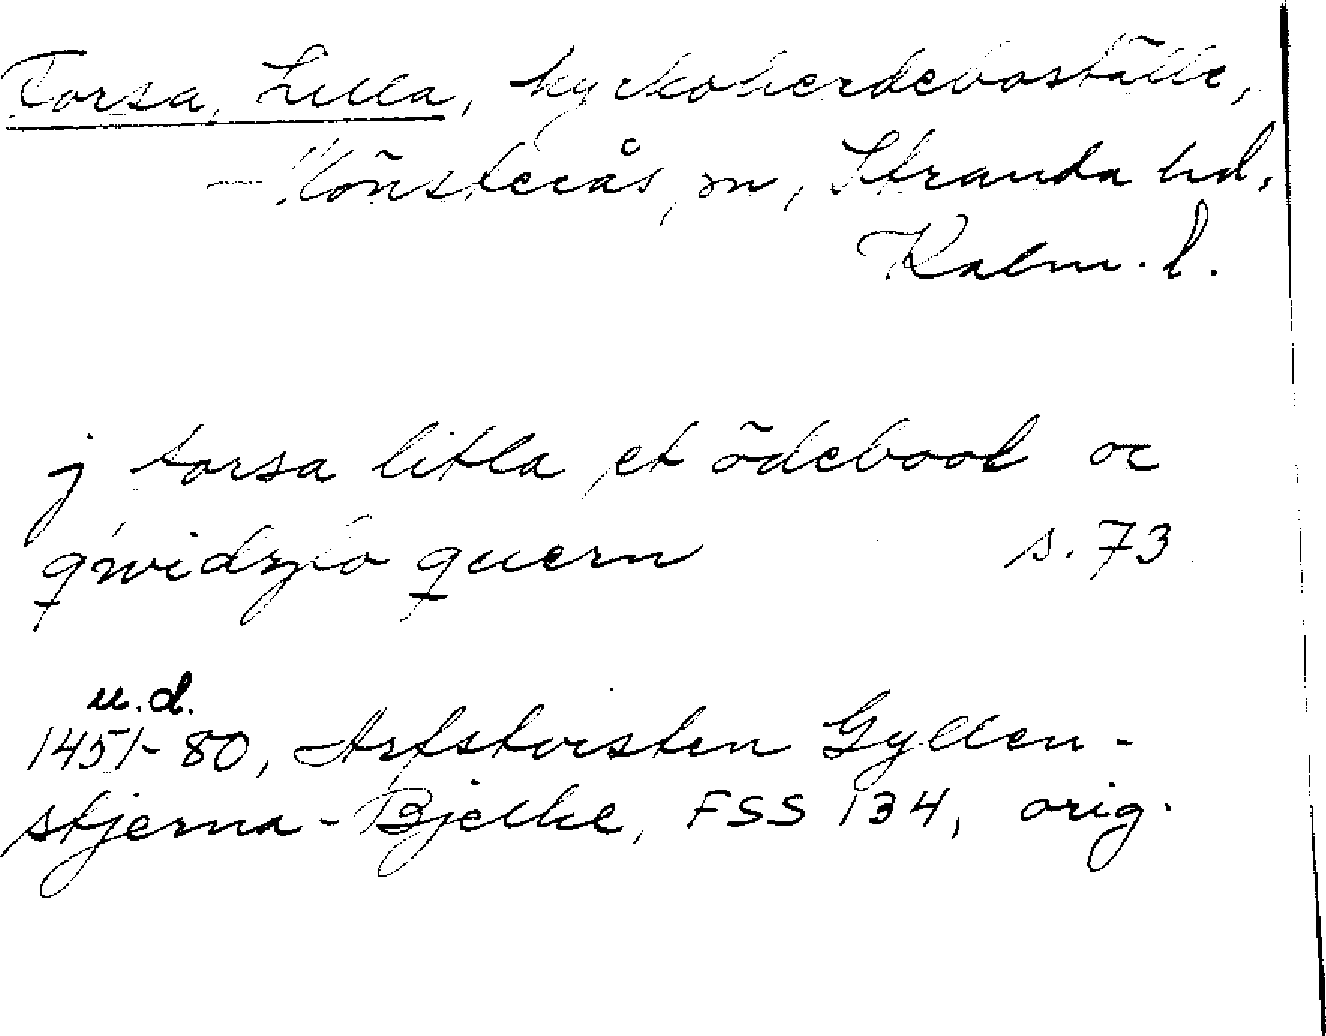 Torsa, Lilla, kyrkoherdeboställe,
Mönsterås, sn, Stranda hd,
Kalm. l.
j torsa litla et ödebool oc
quern s. 73
u.d.
1451-80, Arfstvisten Gyllen-
stjerna-Bjelke, FSS 134, orig.